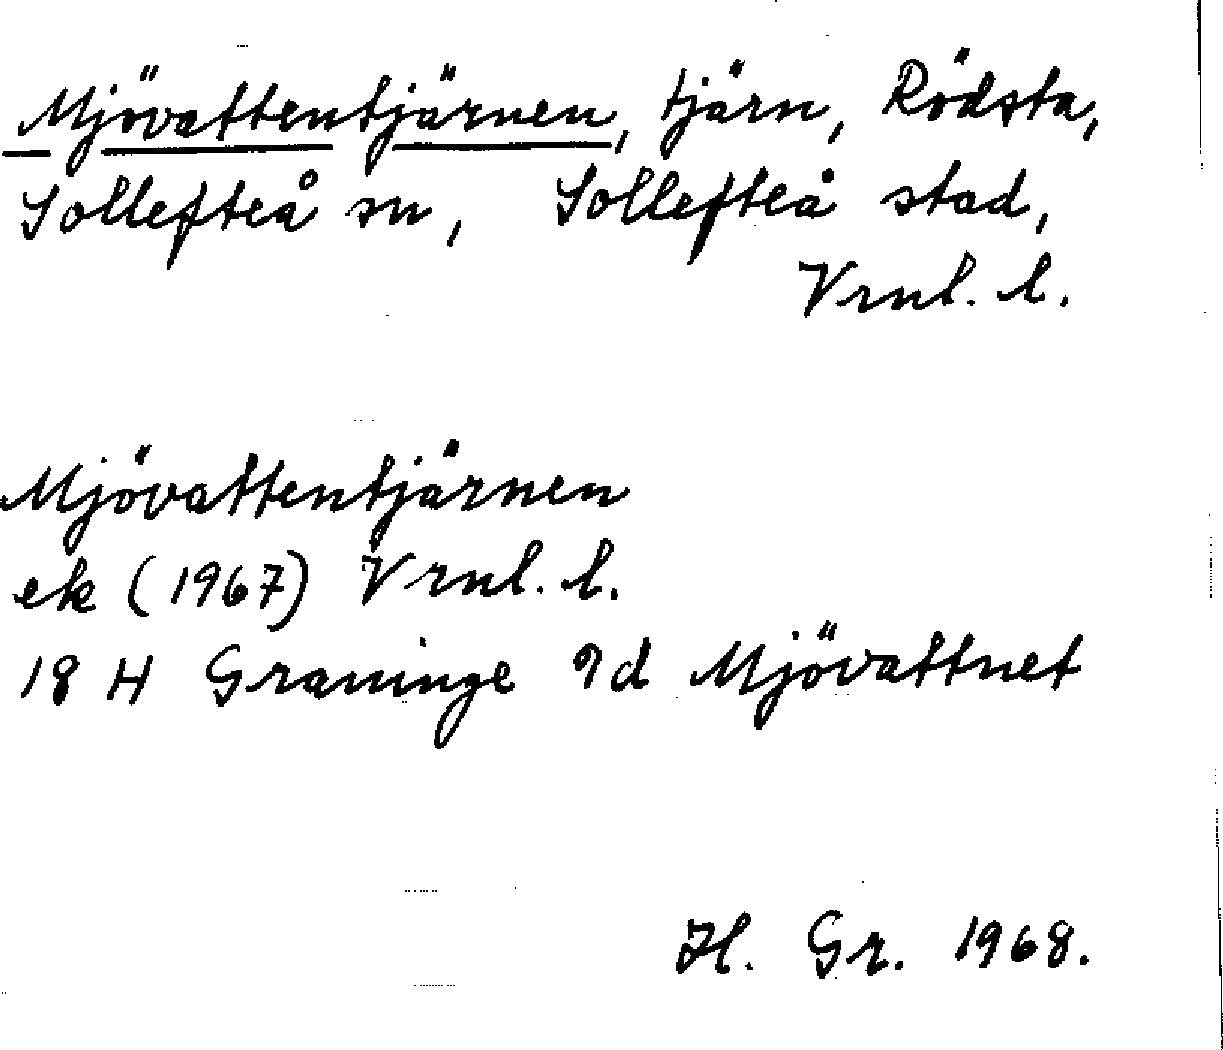 Mjövattentjärnen, tjärn, Rödsta,
Sollefteå sn, Sollefteå stad,
Vrnl. l.
Mjövattentjärnen
ek (1967) Vrnl. l.
18 H Graninge 9d Mjövattnet
H. Gr. 1968.